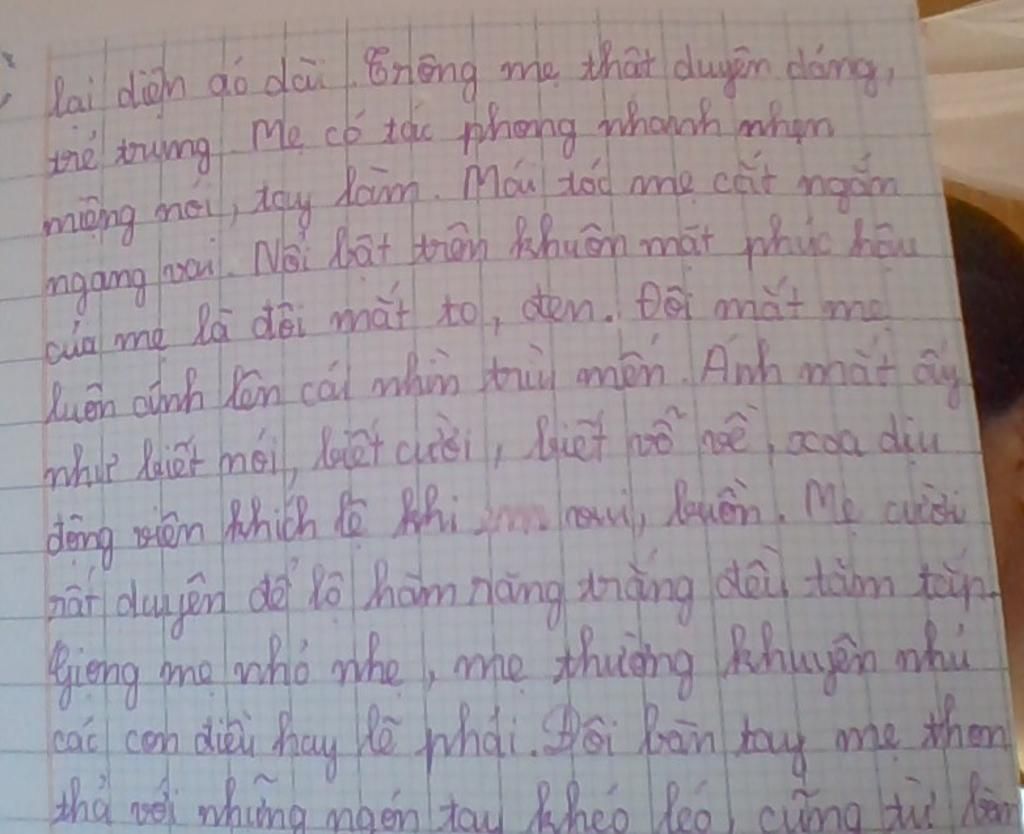 lại diện áo dài. Trông mẹ thật duyên dáng,
trẻ trung. Mẹ có tác phong nhanh nhẹn
miệng nói, tay làm. Mái tóc mẹ cắt ngắn
ngang vai. Nổi bật trên khuôn mặt phúc hậu
của mẹ là đôi mắt to, đen. Đôi mắt mẹ
luôn ánh lên cái nhìn trìu mến. Ánh mắt ấy
như biết nói, biết cười, biết vỗ về, xoa dịu
động viên khích lệ khi vui, buồn. Mẹ cười
rất duyên để lộ hàm răng trắng đều tăm tắp.
Giọng mẹ nhỏ nhẹ, mẹ thường khuyên nhủ
các con điều hay lẽ phải. Đôi bàn tay mẹ thon
thả với những ngón tay khéo léo, cũng từ bàn